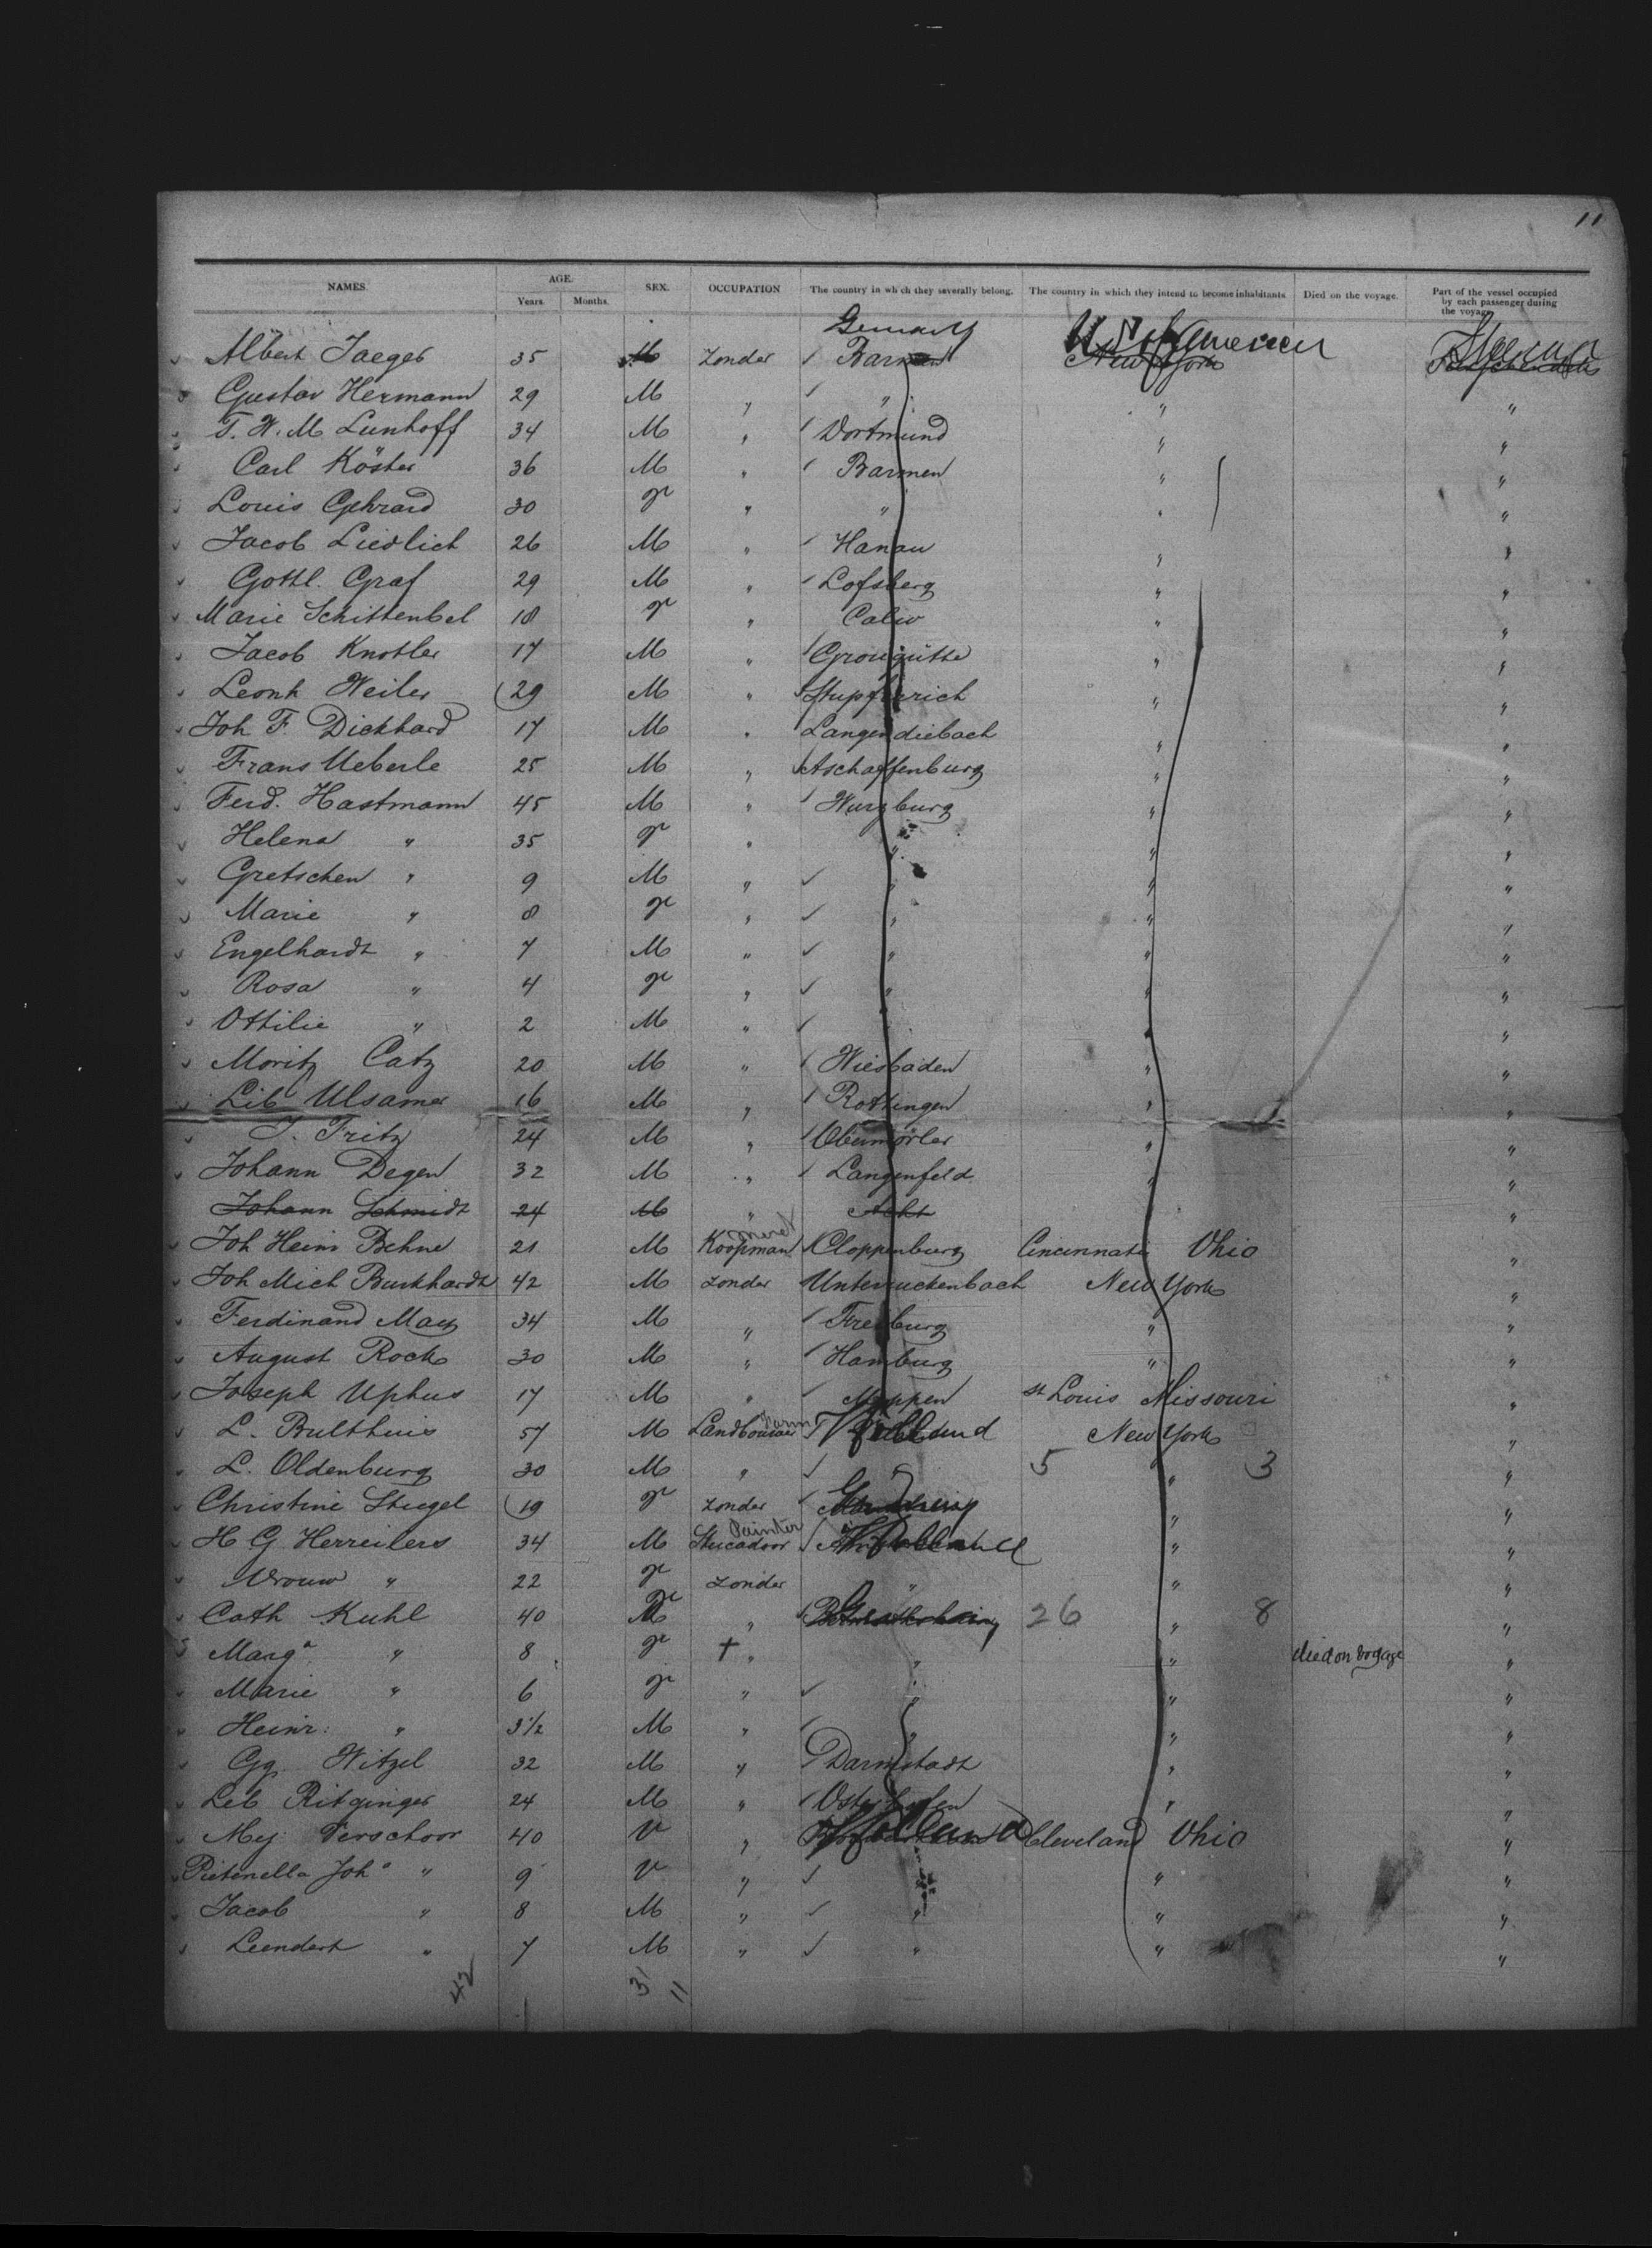 11
NAMES. AGE. SEX. OCCUPATION The country in which they severally belong. The country in which they intend to become inhabitants Died on the voyage. Part of the vessel occupied by each passenger during the voyage
Years. Months.
Germany U S of America
Albert Jaeger 35 M Zonder Barmen New York
Gustav Hermann 29 M " " " "
T. W. M Lunhoff 34 M " Dortmund " "
Carl Köster 36 M " Barmen " "
Louis Gehrard 30 " " " "
Jacob Liedlich 26 M " Hanau " "
Gottl. Graf 29 M " Lofsberg " "
Marie Schittenbel 18 " Caliv " "
Jacob Knotler 17 M " " "
Leonh Weiler 29 M " Stupferich " "
Joh F. Dickhard 17 M " Langendiebach " "
Frans Ueberle 25 M " Aschaffenburg " "
Ferd. Hastmann 45 M " Wurzburg " "
Helena " 35 " " " "
Gretschen " 9 M " " " "
Marie " 8 " " " "
Engelhardt " 7 M " " " "
Rosa " 4 " " " "
Ottilie " 2 M " " " "
Moritz Catz 20 M " Wiesbaden " "
Lib Ulsamer 16 M " Rottingen " "
J. Fritz 24 M " Obermörler " "
Johann Degen 32 M " Langenfeld " "
Johann Schmidt 24 M " "
Joh Heinr Behne 21 M Koopman Cloppenburg Cincinnati Ohio "
Joh Mich Burkhardt 42 M Zonder Unterruckenbach New York "
Ferdinand May 34 M " Freiburg " "
August Rock 30 M " Hamburg " "
Joseph Uphus 17 M " Meppen St Louis Missouri "
L. Bulthuis 57 M Landbouwer Farm Holland New York "
L. Oldenburg 30 M " 5 " 3 "
Christine Stiegel 19 Zonder Germany " "
H G Herreilers 34 M Stucadoor Painter Holland " "
Vrouw " 22 Zonder " " "
Cath Kuhl 40 " 26 " 8 "
Marg a " 8 + " " " died on voyage "
Marie " 6 " " " "
Heinr: " 3 1/2 M " " " "
Gg. Witzel 32 M " Darmstadt " "
Leb Ritginger 24 M " Osterhofen " "
Mej Verschoor 40 V " Holland Cleveland Ohio "
Pieternella Joh a " 9 V " " "
Jacob " 8 M " " " "
Leendert " 7 M " " " "
42 31 11